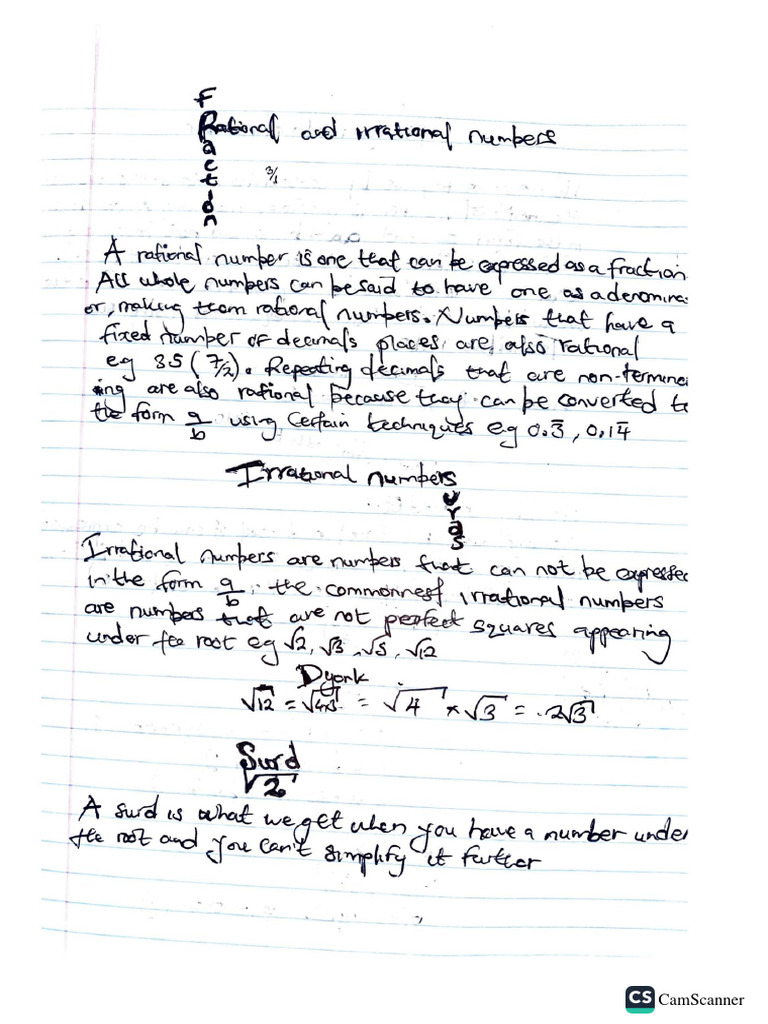 F
Rational and irrational numbers
a
c
t 3/1
i
o
n
A rational number is one that can be expressed as a fraction
All whole numbers can be said to have one as a denomina
or, making them rational numbers. Numbers that have a
fixed number of decimals places are also rational
eg 3.5 (7/2). Repeating decimals that are non-termina
ing are also rational because they can be converted to
the form a/b using certain techniques eg 0.3̅, 0.14̅
Irrational numbers
u
r
d
s
Irrational numbers are numbers that can not be expressed
in the form a/b, the commonest irrational numbers
are numbers that are not perfect squares appearing
under the root eg √2, √3, √5, √12
Dyork
√12 = √4x3 = √4 × √3 = 2√3
Surd
√2
A surd is what we get when you have a number under
the root and you can't simplify it further
CS CamScanner